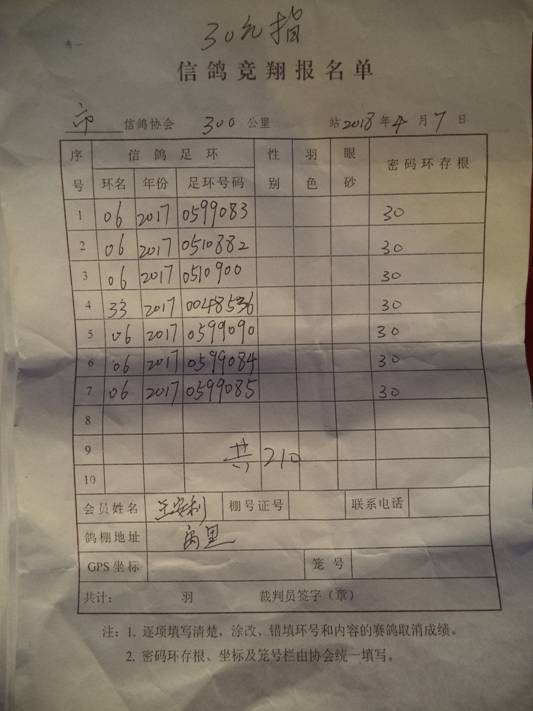 30元指
信鸽竞翔报名单
市 信鸽协会 300 公里 站 2018 年 4 月 7 日
序号 信鸽足环 性别 羽色 眼砂 密码环存根
环名 年份 足环号码
1 06 2017 0599083 30
2 06 2017 0510882 30
3 06 2017 0510900 30
4 33 2017 0048536 30
5 06 2017 0599090 30
6 06 2017 0599084 30
7 06 2017 0599085 30
8
9
共210
10
会员姓名 王安利 棚号证号 联系电话
鸽棚地址 禹里
GPS坐标 笼号
共计: 羽 裁判员签字(章)
注:1. 逐项填写清楚,涂改、错填环号和内容的赛鸽取消成绩。
2. 密码环存根、坐标及笼号栏由协会统一填写。